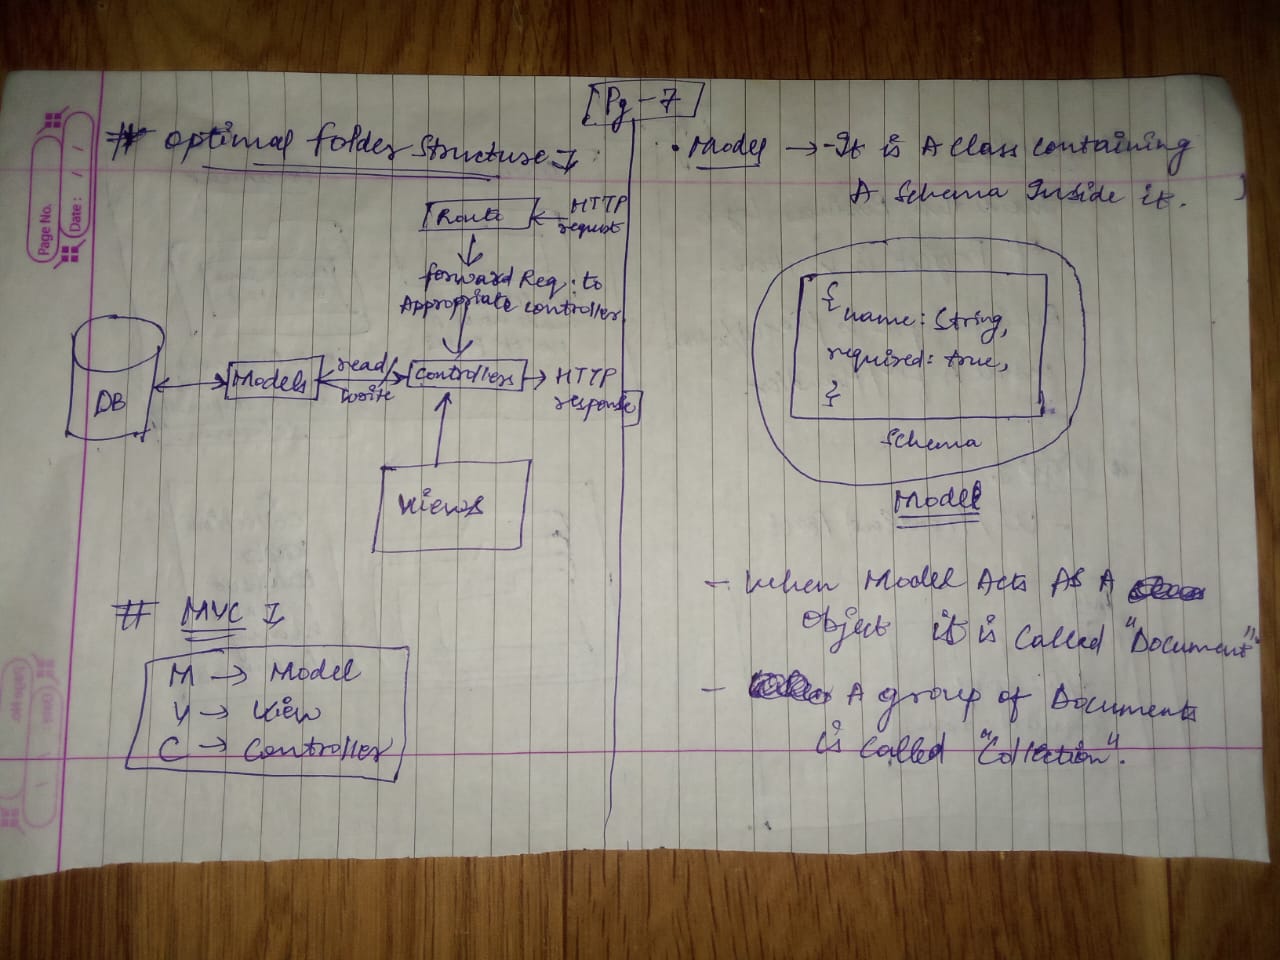 Pg - 7
Page No.
Date: / /
# Optimal folder structure :-
Route
HTTP
request
forward Req. to
Appropriate controller
DB
Models
read/
write
Controllers
HTTP
response
Views
# MVC :-
M → Model
V → View
C → Controller
• Model → - It is A class containing
A Schema Inside it.
{
name: String,
required: true,
}
Schema
Model
- When Model Acts As A
Object it is called "Document"
- A group of Documents
is called "Collection".